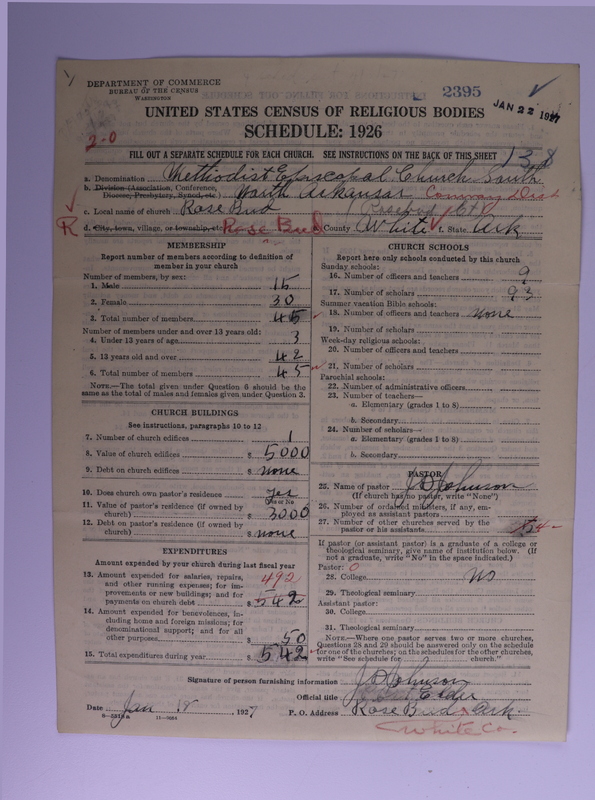 DEPARTMENT OF COMMERCE
BUREAU OF THE CENSUS
WASHINGTON
2395
JAN 22 1927
UNITED STATES CENSUS OF RELIGIOUS BODIES
SCHEDULE: 1926
2-0
FILL OUT A SEPARATE SCHEDULE FOR EACH CHURCH. SEE INSTRUCTIONS ON THE BACK OF THIS SHEET
138
a. Denomination Methodist Episcopal Church South
b. Division (Association, Conference, Diocese, Presbytery, Synod, etc.) North Arkansas Conway Dist
c. Local name of church Rose Bud (Rosebud Ct)
R d. City, town, village, or township, etc. Rose Bud County White t. State Ark
MEMBERSHIP
Report number of members according to definition of
member in your church
Number of members, by sex:
1. Male 15
2. Female 30
3. Total number of members 45
Number of members under and over 13 years old:
4. Under 13 years of age 3
5. 13 years old and over 42
6. Total number of members 45
NOTE.—The total given under Question 6 should be
same as the total of males and females given under Question 3.
CHURCH BUILDINGS
See instructions, paragraphs 10 to 12
7. Number of church edifices 1
8. Value of church edifices $ 5000
9. Debt on church edifices $ none
10. Does church own pastor's residence yes
(Yes or No)
11. Value of pastor's residence (if owned by
church) $ 3000
12. Debt on pastor's residence (if owned by
church) $ none
EXPENDITURES
Amount expended by your church during last fiscal year
13. Amount expended for salaries, repairs,
and other running expenses; for im-
provements or new buildings; and for
payments on church debt $ 542 492
14. Amount expended for benevolences, in-
cluding home and foreign missions; for
denominational support; and for all
other purposes $ 50
15. Total expenditures during year $ 542
CHURCH SCHOOLS
Report here only schools conducted by this church
Sunday schools:
16. Number of officers and teachers 9
17. Number of scholars 93
Summer vacation Bible schools:
18. Number of officers and teachers none
19. Number of scholars
Week-day religious schools:
20. Number of officers and teachers
21. Number of scholars
Parochial schools:
22. Number of administrative officers
23. Number of teachers—
a. Elementary (grades 1 to 8)
b. Secondary
24. Number of scholars—
a. Elementary (grades 1 to 8)
b. Secondary
PASTOR
25. Name of pastor J D Johnson
(If church has no pastor, write "None")
26. Number of ordained ministers, if any, em-
ployed as assistant pastors
27. Number of other churches served by the
pastor or his assistants
If pastor (or assistant pastor) is a graduate of a college or
theological seminary, give name of institution below. (If
not a graduate, write "No" in the space indicated.)
Pastor: 0
28. College No
29. Theological seminary
Assistant pastor:
30. College
31. Theological seminary
NOTE.—Where one pastor serves two or more churches,
Questions 28 and 29 should be answered only on the schedule
for one of the churches; on the schedules for the other churches,
write "See schedule for church."
Signature of person furnishing information J D Johnson
Official title Elder
Date Jan 18 1927 P. O. Address Rose Bud Ark
8-5518a 11-9064
White Co.